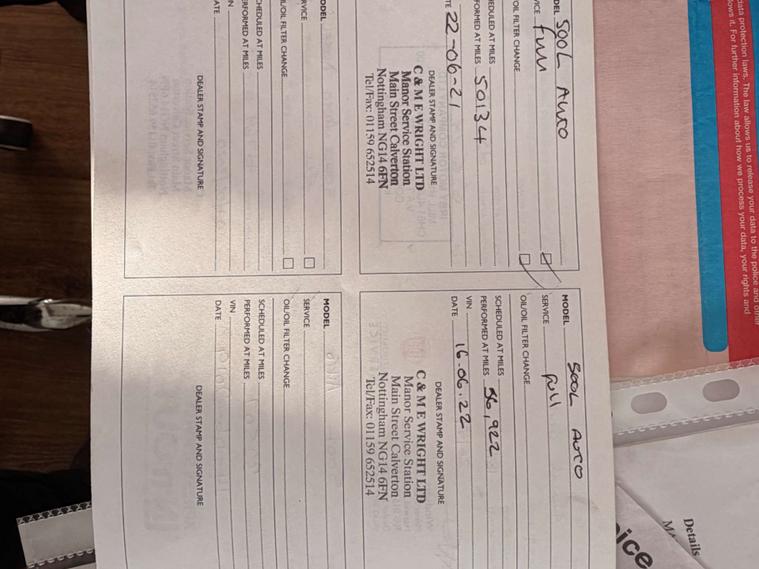 MODEL 500L AUTO
SERVICE full
OIL/OIL FILTER CHANGE
SCHEDULED AT MILES
PERFORMED AT MILES 50134
DATE 22-06-21
DEALER STAMP AND SIGNATURE
C & M E WRIGHT LTD
Manor Service Station
Main Street Calverton
Nottingham NG14 6FN
Tel/Fax: 01159 652514
MODEL 500L AUTO
SERVICE full
OIL/OIL FILTER CHANGE
SCHEDULED AT MILES
PERFORMED AT MILES 56,922
VIN
DATE 16.06.22
DEALER STAMP AND SIGNATURE
C & M E WRIGHT LTD
Manor Service Station
Main Street Calverton
Nottingham NG14 6FN
Tel/Fax: 01159 652514
MODEL
SERVICE
OIL/OIL FILTER CHANGE
SCHEDULED AT MILES
PERFORMED AT MILES
VIN
DATE
DEALER STAMP AND SIGNATURE
MODEL
SERVICE
OIL/OIL FILTER CHANGE
SCHEDULED AT MILES
PERFORMED AT MILES
VIN
DATE
DEALER STAMP AND SIGNATURE
data protection laws. The law allows us to release your data to the police and other
allows it. For further information about how we process your data, your rights and
Details
oice